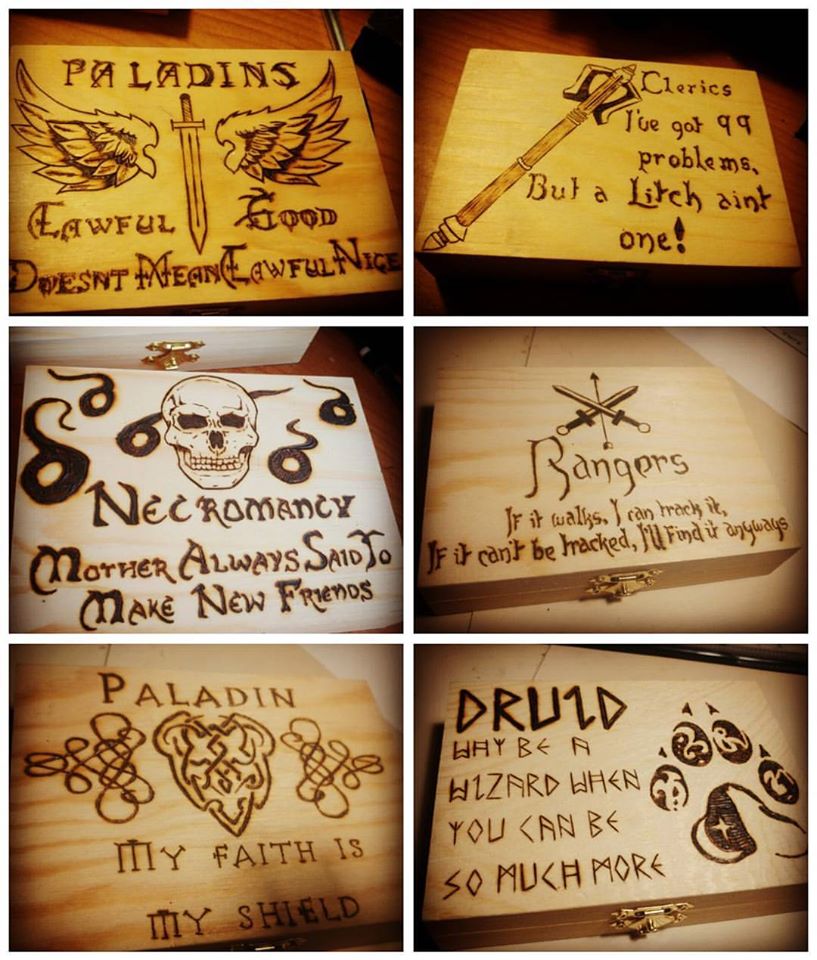 PALADINS
LAWFUL GOOD
DOESNT MEAN LAWFUL NICE
Clerics
I've got 99
problems,
But a Litch aint
one!
NECROMANCY
MOTHER ALWAYS SAID TO
MAKE NEW FRIENDS
Rangers
If it walks, I can track it,
If it can't be tracked, I'll find it anyways
PALADIN
MY FAITH IS
MY SHIELD
DRUID
WHY BE A
WIZARD WHEN
YOU CAN BE
SO MUCH MORE